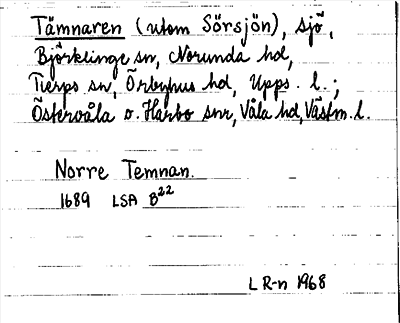 Tämnaren (utom Sörsjön), sjö,
Björklinge sn, Norunda hd,
Tierps sn, Örbyhus hd, Upps. l.;
Östervåla o. Harbo snr, Våla hd, Västm. l.
Norre Temnan.
1689 LSA B22
L R-n 1968